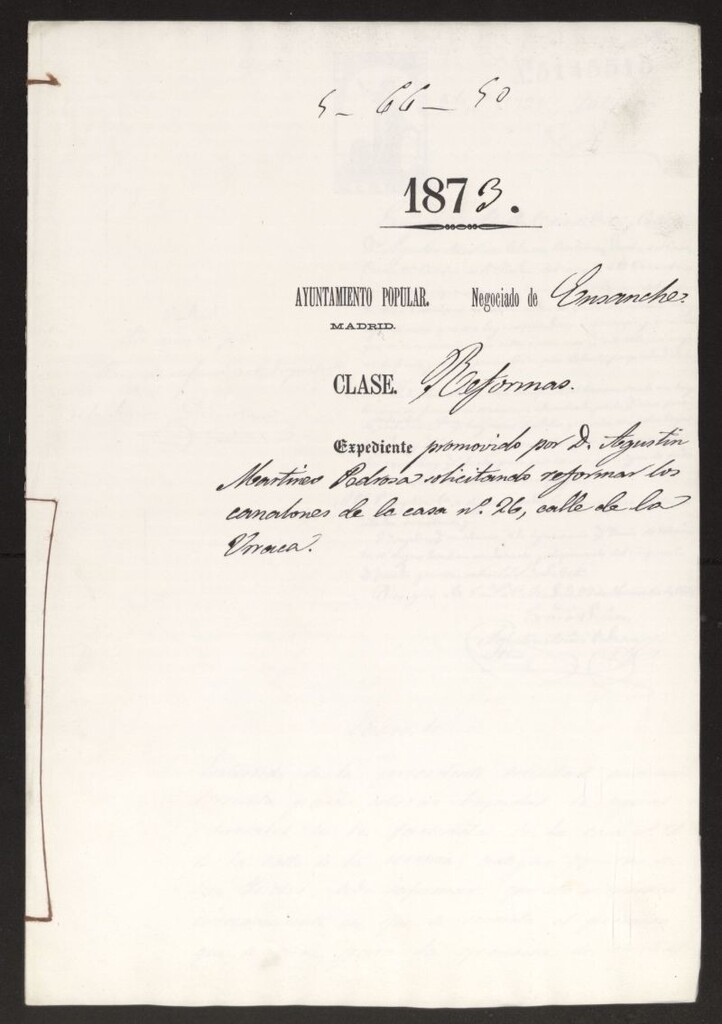 5-66-50
1873.
AYUNTAMIENTO POPULAR. Negociado de Ensanche.
MADRID.
CLASE. Reformas.
Expediente promovido por D. Agustin
Martinez Pedrosa solicitando reformar los
canalones de la casa nº. 26, calle de la